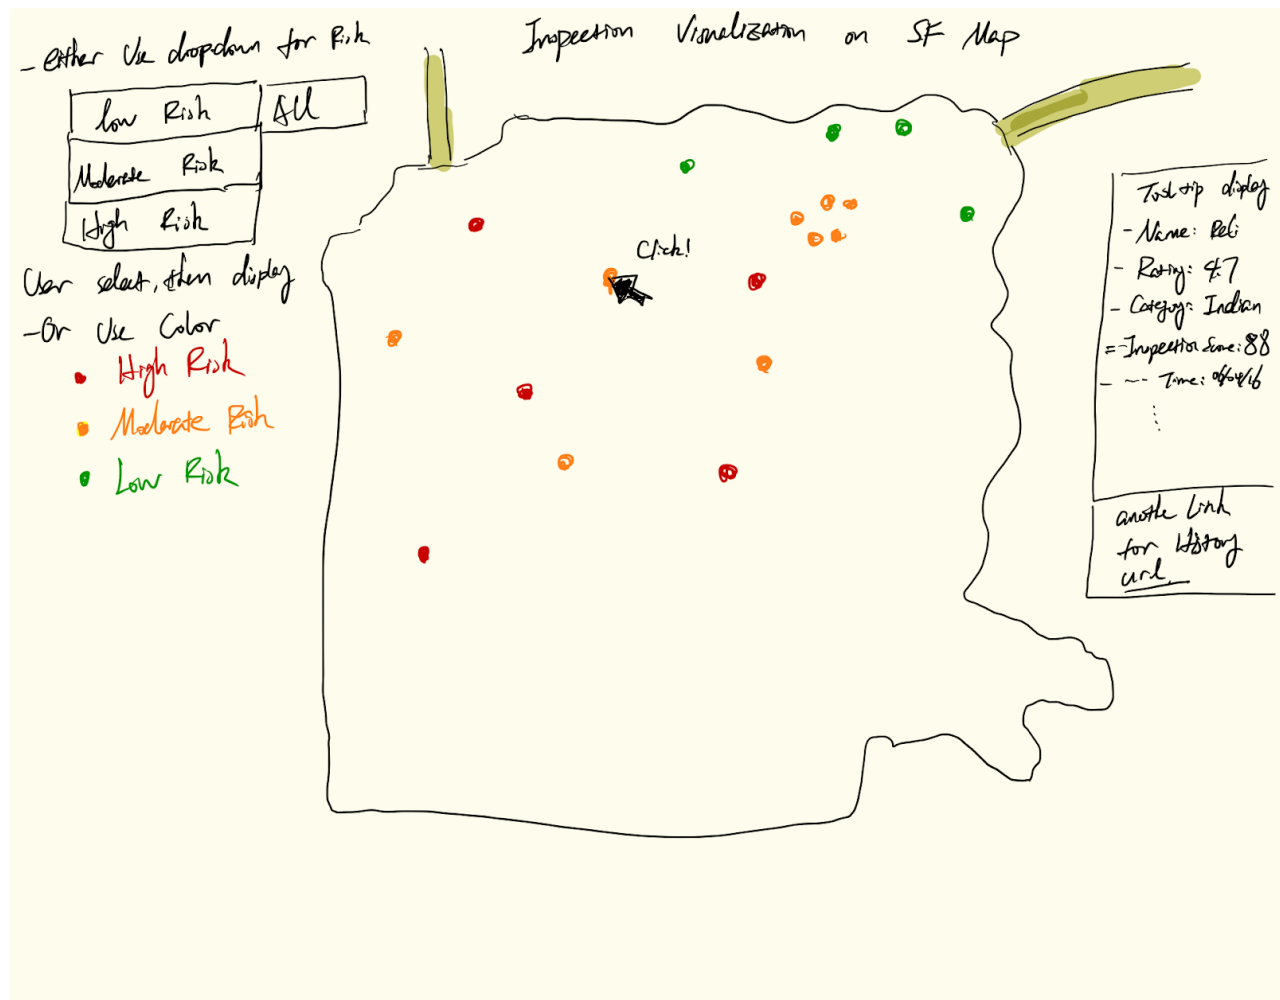 Inspection Visualization on SF Map
- either Use dropdown for Risk
Low Risk
All
Moderate Risk
High Risk
User select, then display
- Or Use Color
High Risk
Moderate Risk
Low Risk
Click!
Tooltip display
- Name:
- Rating: 4.7
- Category: Indian
- Inspection Score: 88
- --- Time: 06/04/16
another Link
for History
url